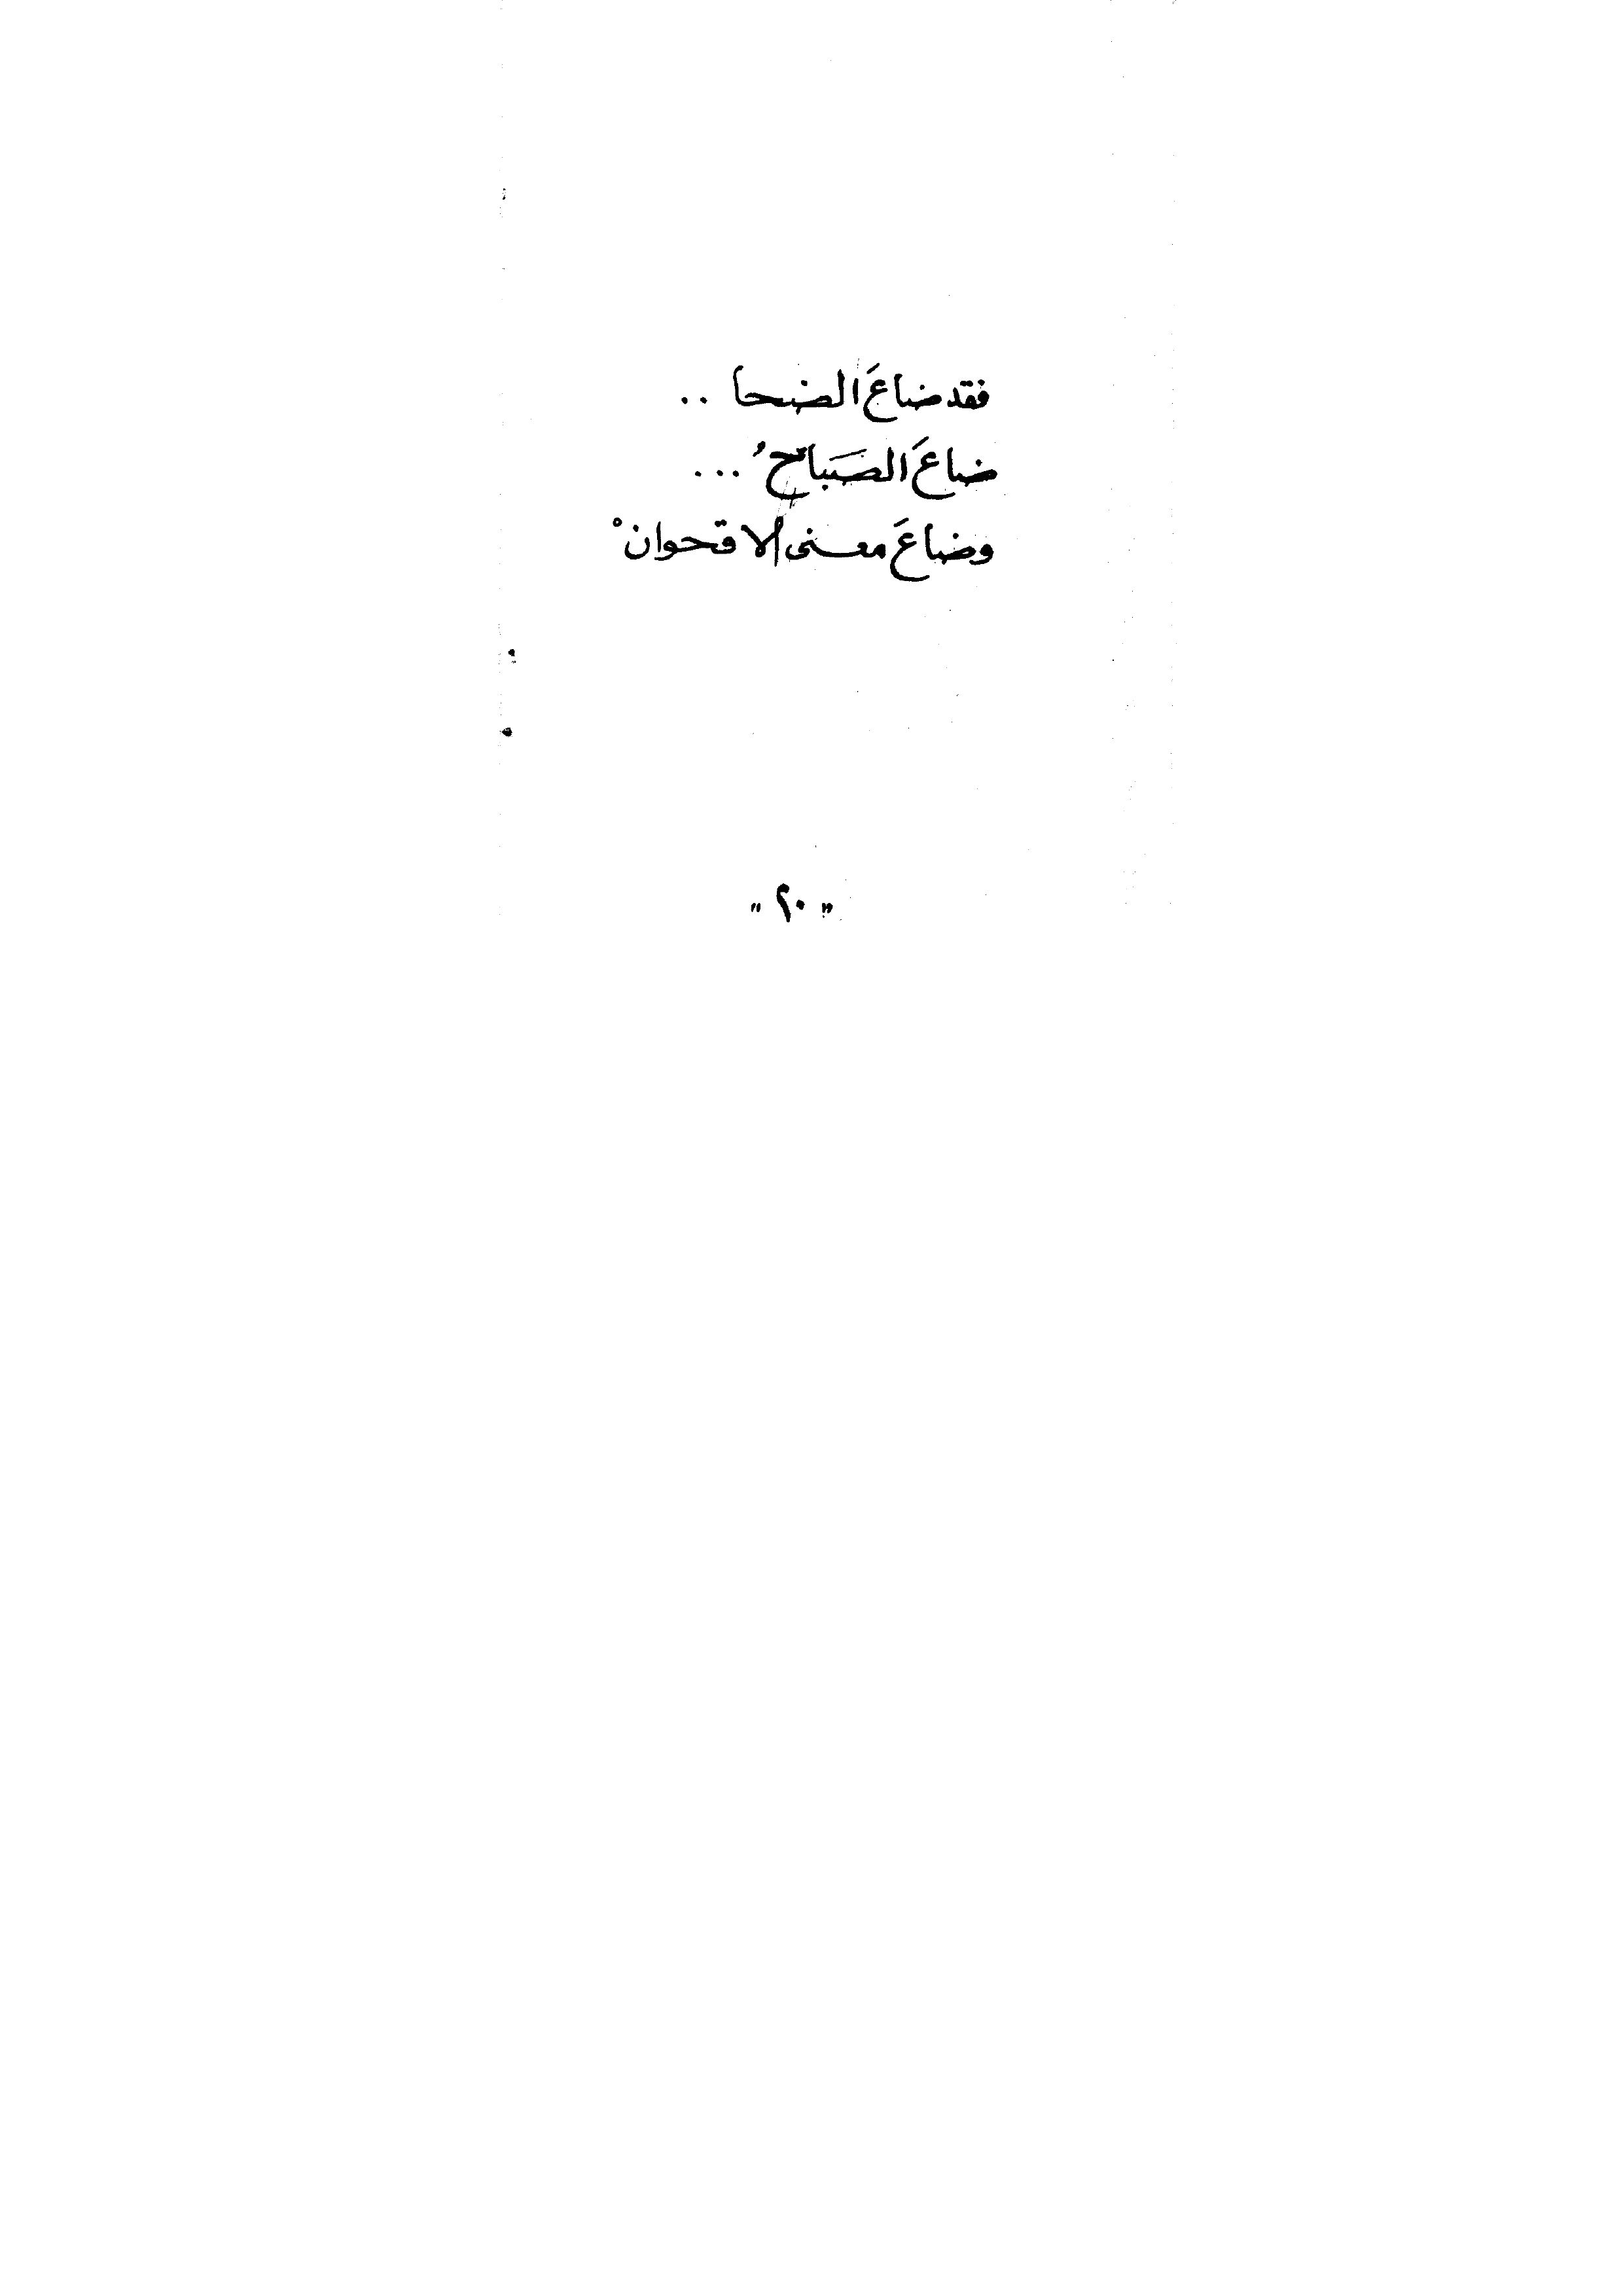 فقد ضاعَ الضحا ..
ضاعَ الصَباحُ ...
وضاعَ معنى الاقحوانْ
" ٢٠ "